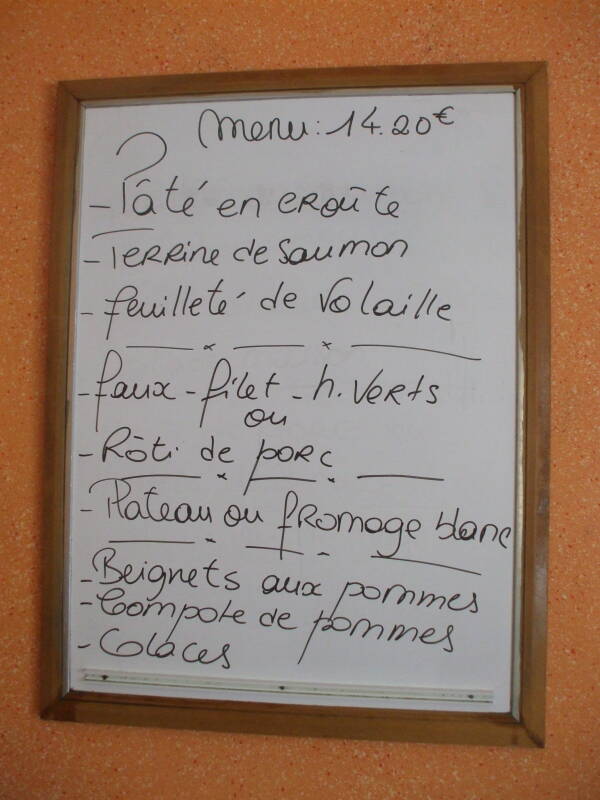 Menu: 14.20€
- Pâté en croûte
- Terrine de Saumon
- feuilleté de Volaille
- faux-filet - h. Verts
ou
- Rôti de porc
- Plateau ou fromage blanc
- Beignets aux pommes
- Compote de pommes
- Glaces